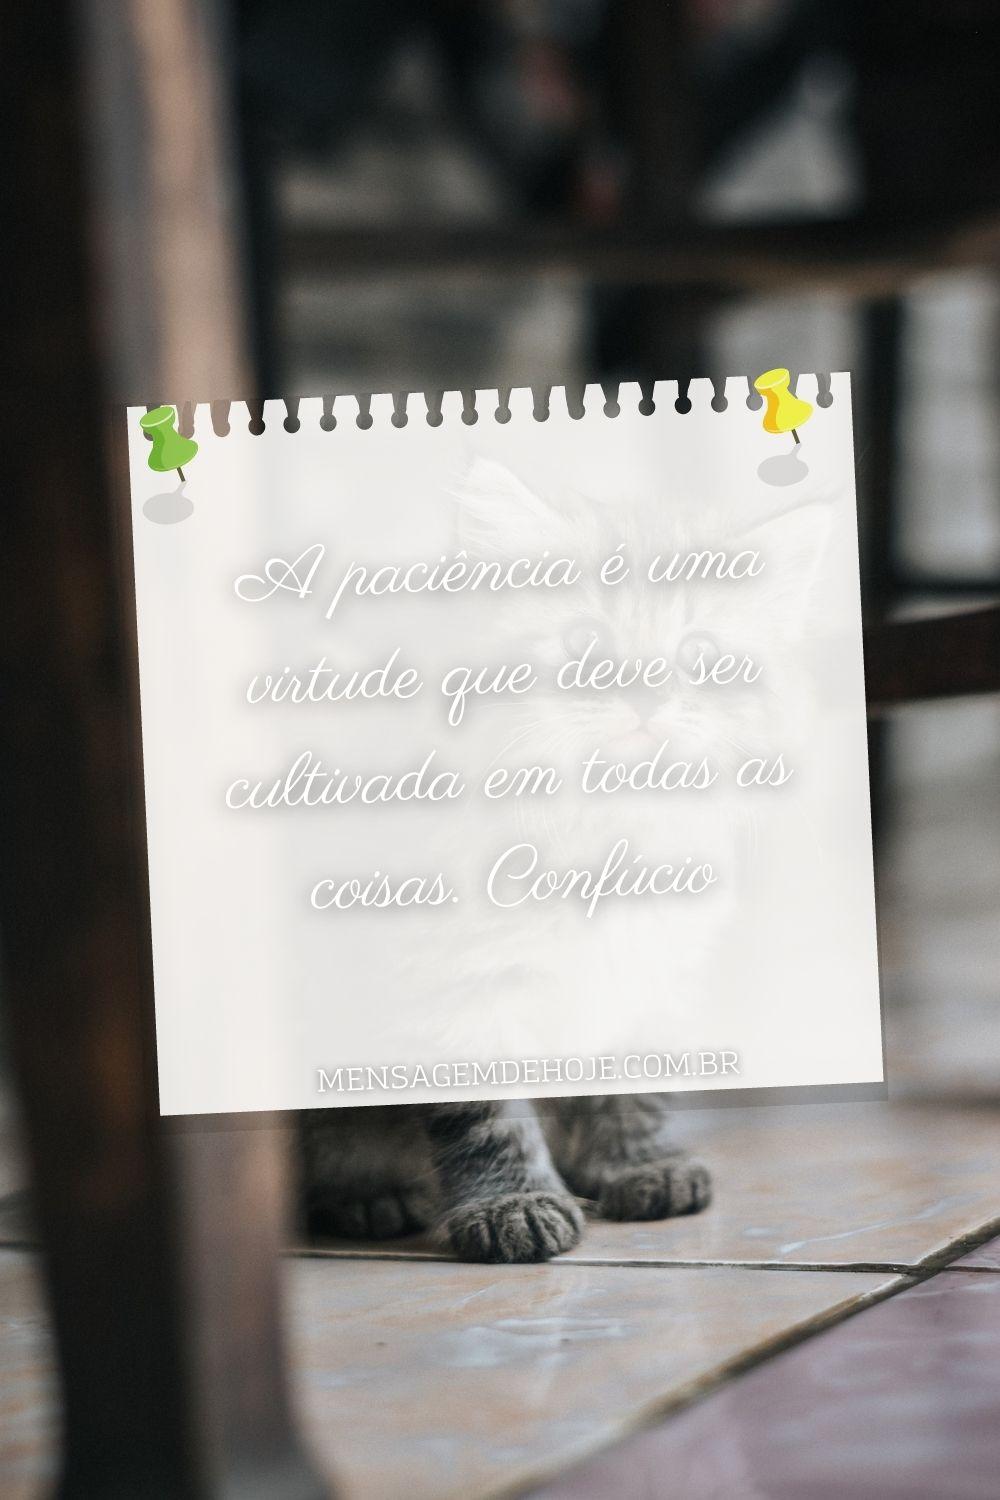 A paciência é uma
virtude que deve ser
cultivada em todas as
coisas. Confúcio
MENSAGEMDEHOJE.COM.BR